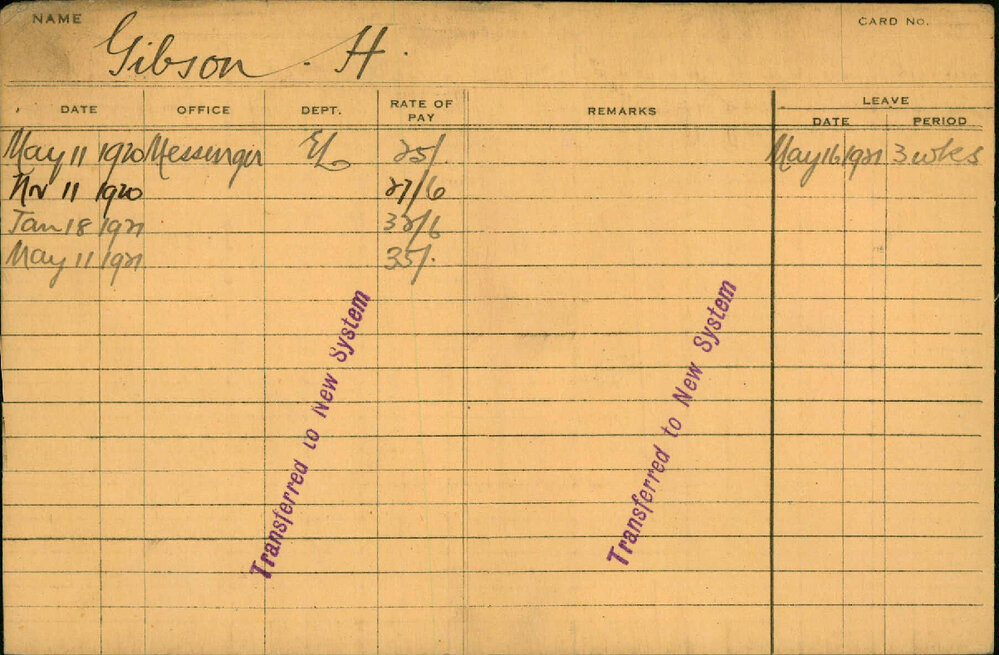 NAME
CARD No.
Gibson . H.
DATE OFFICE DEPT. RATE OF PAY REMARKS LEAVE
DATE PERIOD
May 11 1920 Messenger 25/ May 16 1921 3 wks
Nov 11 1920 27/6
Jan 18 1921 32/6
May 11 1921 35/.
Transferred to New System
Transferred to New System